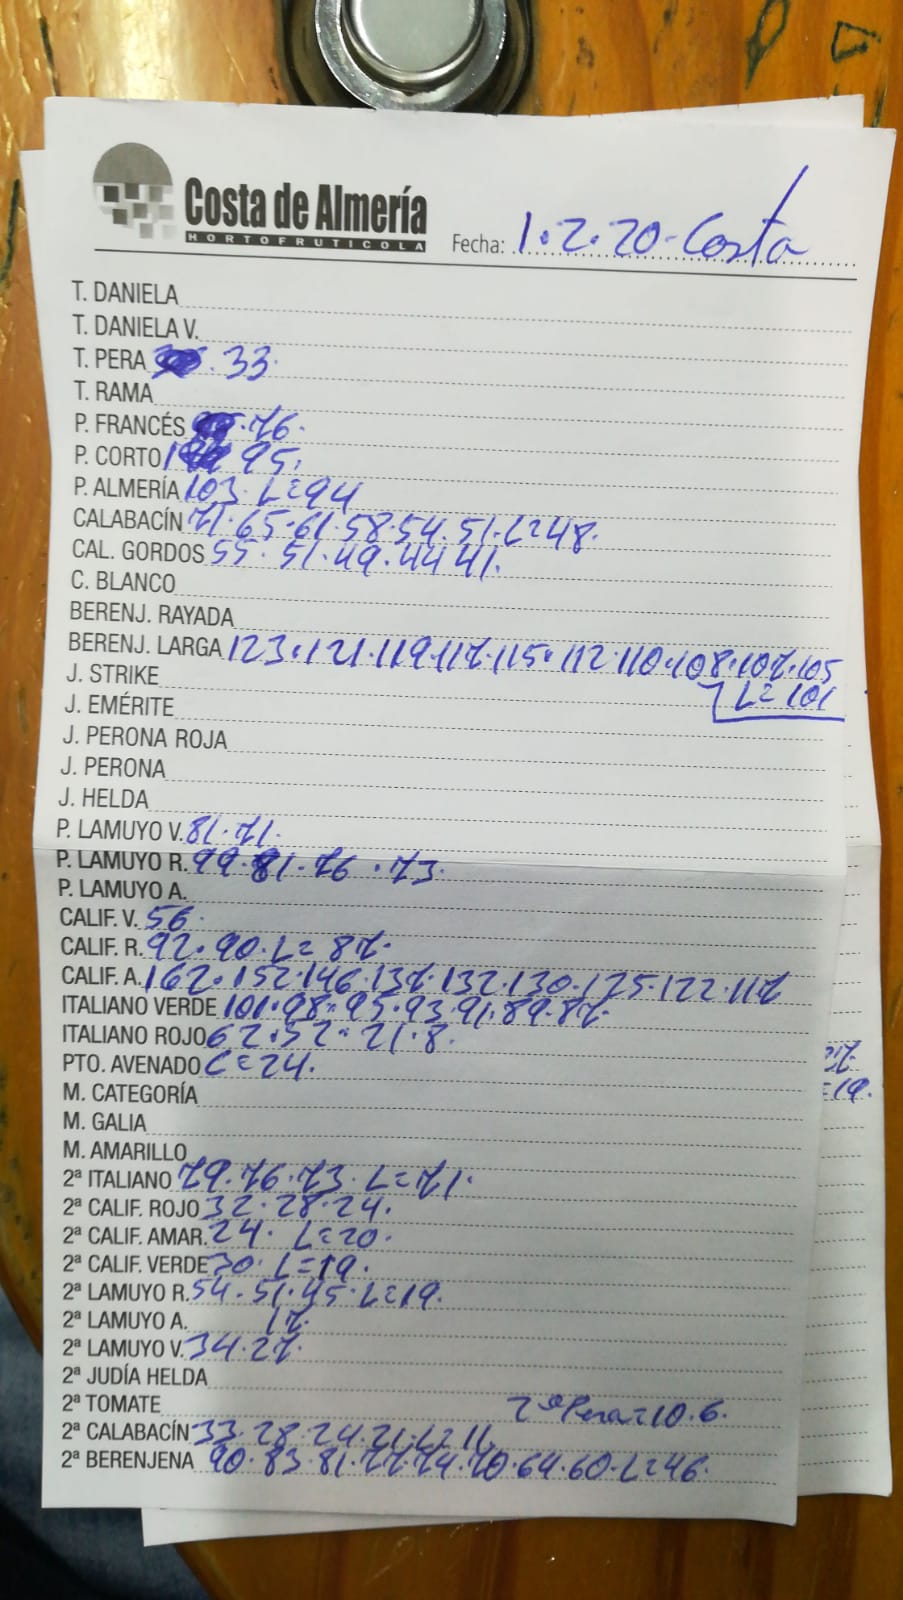 Costa de Almería
HORTOFRUTICOLA
Fecha: 1.2.20-Costa
T. DANIELA
T. DANIELA V.
T. PERA . 33.
T. RAMA
P. FRANCÉS .76.
P. CORTO 95.
P. ALMERÍA 103. L=94
CALABACÍN 71.65.61.58.54.51.L=48.
CAL. GORDOS 55. 51.49.44 41.
C. BLANCO
BERENJ. RAYADA
BERENJ. LARGA 123.121.119.117.115.112.110.108.107.105
J. STRIKE L=101
J. EMÉRITE
J. PERONA ROJA
J. PERONA
J. HELDA
P. LAMUYO V. 81.71.
P. LAMUYO R. 99.81.76.73.
P. LAMUYO A.
CALIF. V. 56.
CALIF. R. 92.90.L=87.
CALIF. A. 162.152.146.137.132.130.125.122.117
ITALIANO VERDE 101.98.95.93.91.89.87.
ITALIANO ROJO 62.52.21.8.
PTO. AVENADO L=24.
M. CATEGORÍA
=19.
M. GALIA
M. AMARILLO
2ª ITALIANO 79.76.73.L=71.
2ª CALIF. ROJO 32.28.24.
2ª CALIF. AMAR. 24. L=20.
2ª CALIF. VERDE 30. L=19.
2ª LAMUYO R. 54.51.45.L=19.
2ª LAMUYO A. 17.
2ª LAMUYO V. 34.27.
2ª JUDÍA HELDA
2ª TOMATE 2ª Pera=10.6.
2ª CALABACÍN 33.28.24.21.L=11.
2ª BERENJENA 90.83.81.77.74.70.64.60.L=46.